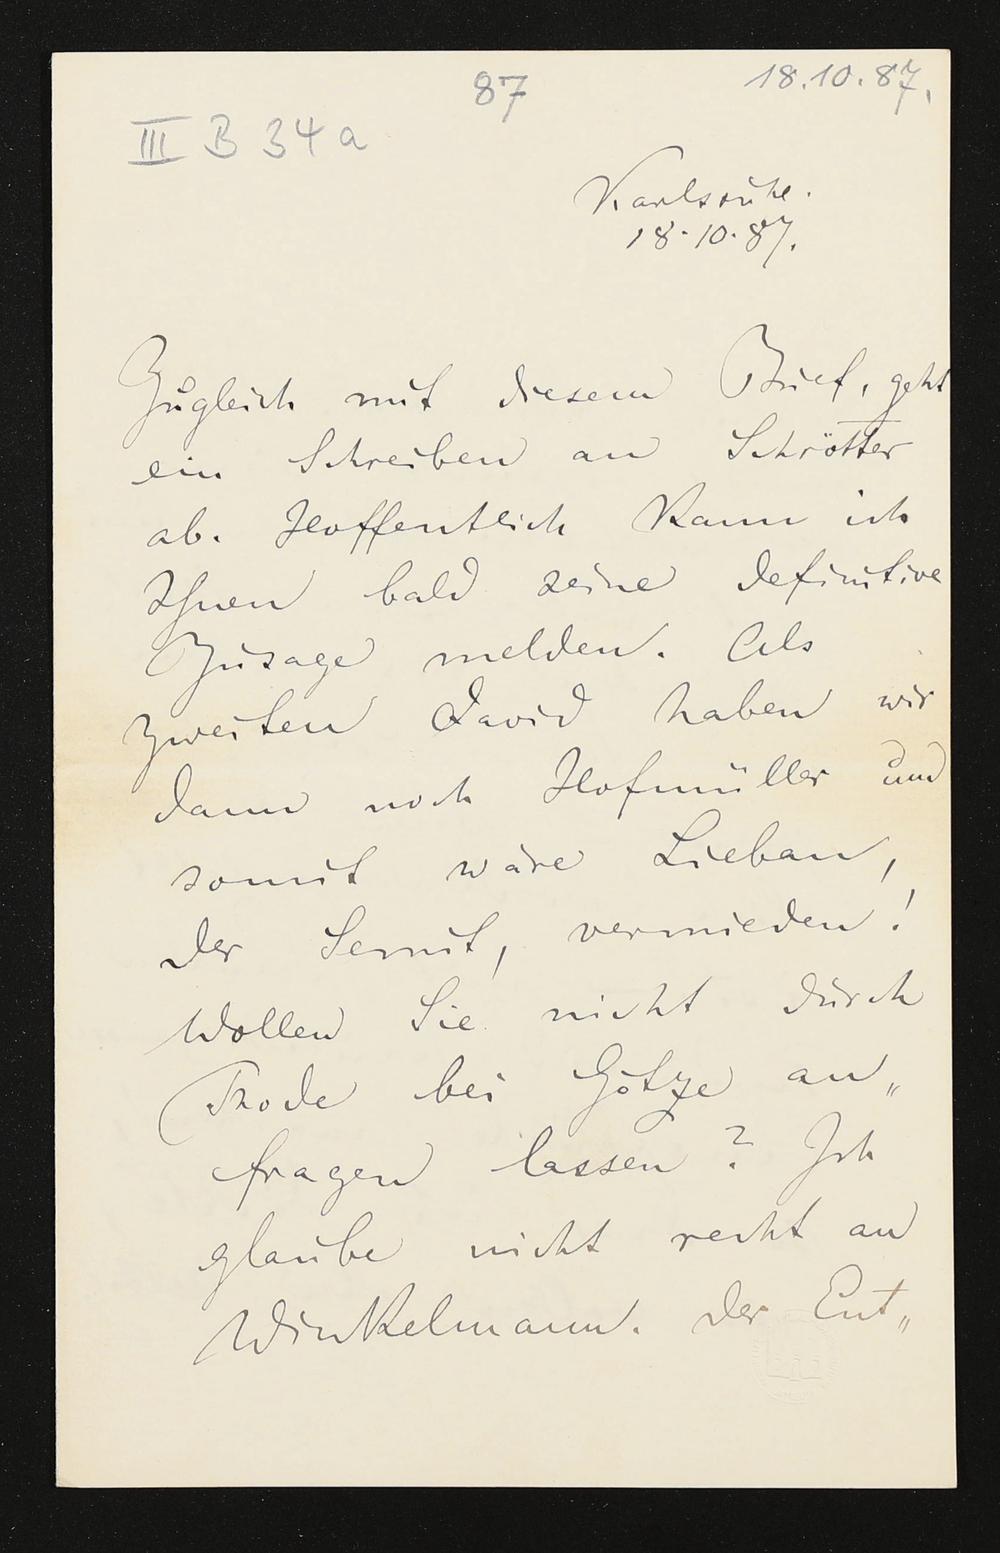 87
18.10.87.
III B 34 a
Karlsruhe.
18.10.87.
Zugleich mit diesem Brief, geht
ein Schreiben an Schrötter
ab. Hoffentlich kann ich
Ihnen bald seine definitive
Zusage melden. Als
zweiten David haben wir
dann noch Hofmüller und
somit wäre Lieban,
der Semit, vermieden!
Wollen Sie nicht durch
Thode bei Götze an„
fragen lassen? Ich
glaube nicht recht an
Winkelmann. Der Ent„